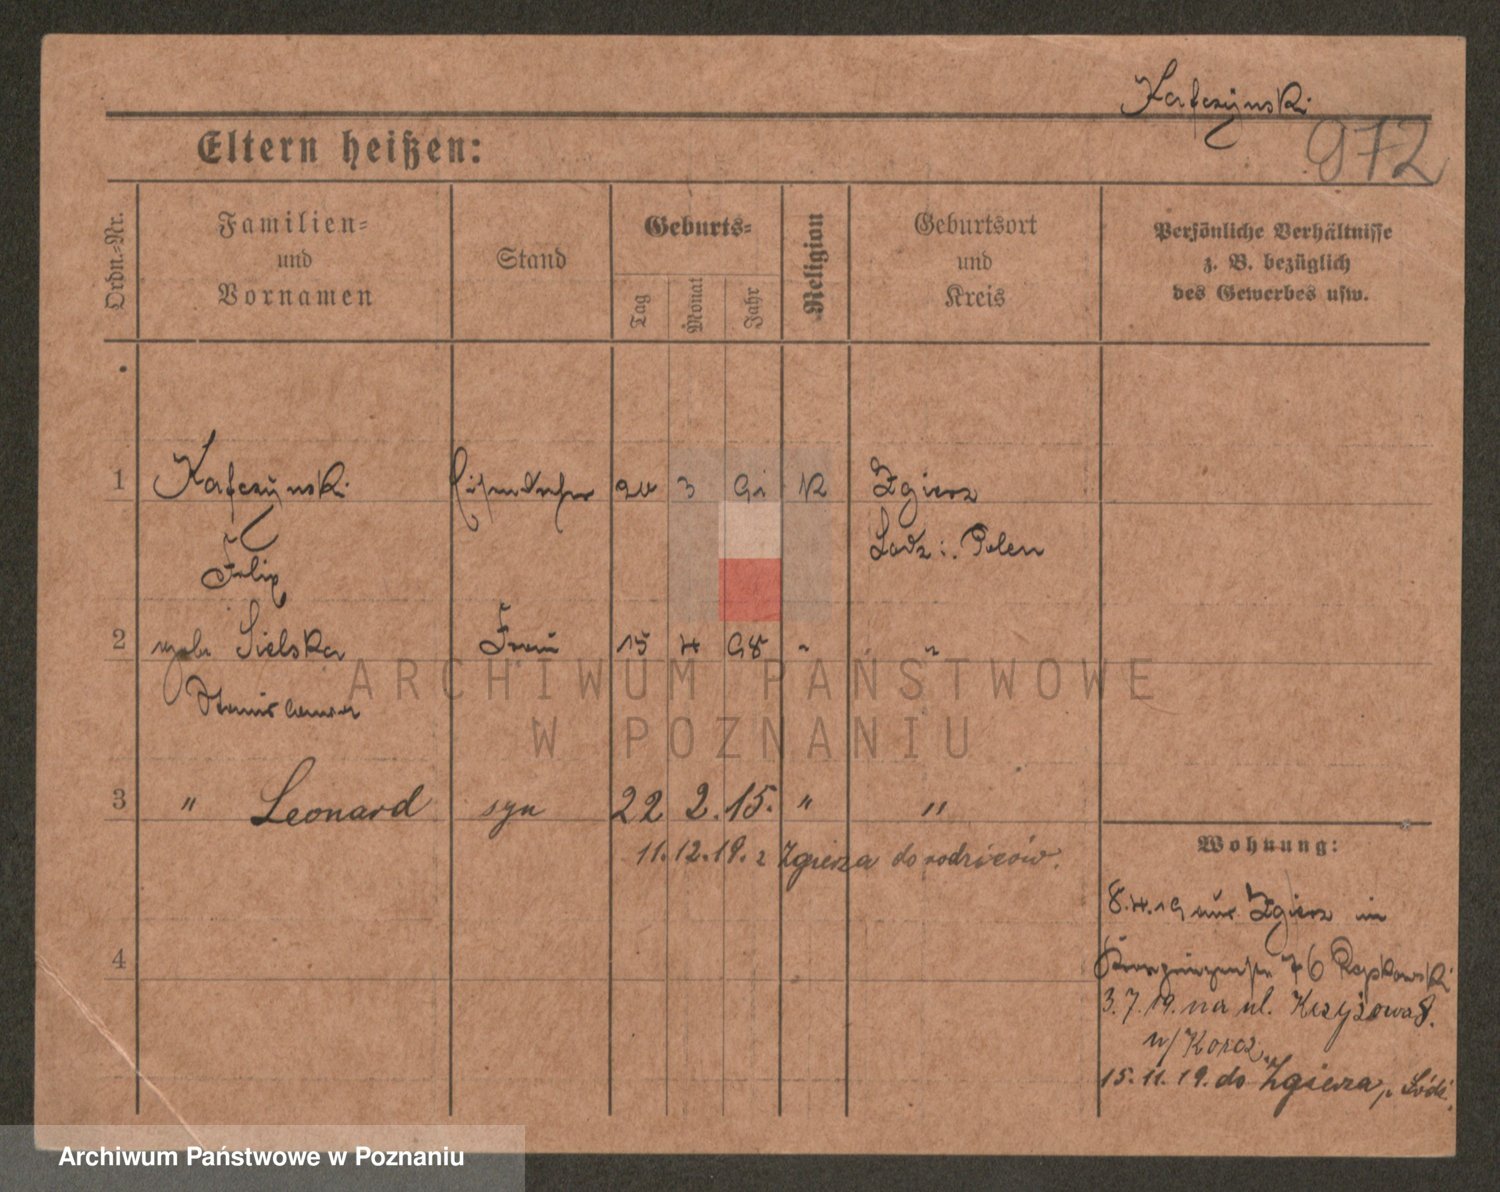 Kafczynski
972
Eltern heißen:
Ordn.-Nr.
Familien-
und
Vornamen
Stand
Geburts-
Tag
Monat
Jahr
Religion
Geburtsort
und
Kreis
Persönliche Verhältnisse
z. B. bezüglich
des Gewerbes usw.
1 Kafczynski 20 3 91 K Zgierz
Felix Lodz i. Polen
2 geb. Sielska Frau 15 4 98 " "
Stanislawa
3 " Leonard syn 22 2. 15. " "
11. 12. 19. z Zgierza do rodziców.
Wohnung:
8.4.19 aus Zgierz in
4
76
3. 7. 19. na ul. Krzyżowa 8.
w/ Korcz
15. 11. 19. do Zgierza, p. Łódź.
ARCHIWUM PAŃSTWOWE
W POZNANIU
Archiwum Państwowe w Poznaniu